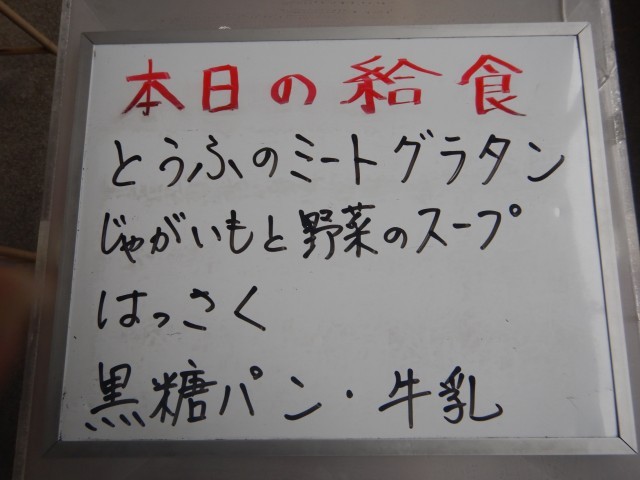 本日の給食
とうふのミートグラタン
じゃがいもと野菜のスープ
はっさく
黒糖パン・牛乳